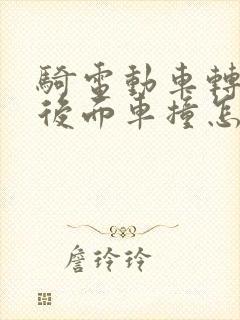 騎電動車轉
後而車撞怎
詹玲玲